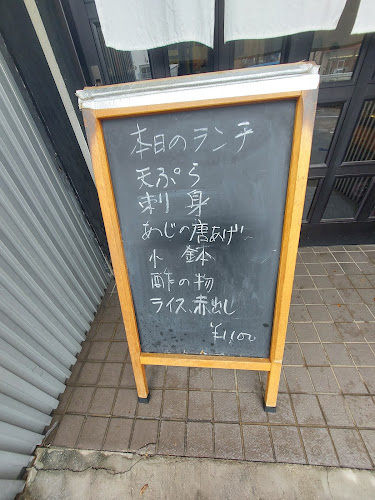 本日のランチ
天ぷら
刺身
あじの唐あげ
小鉢
酢の物
ライス、赤出し
¥1,100